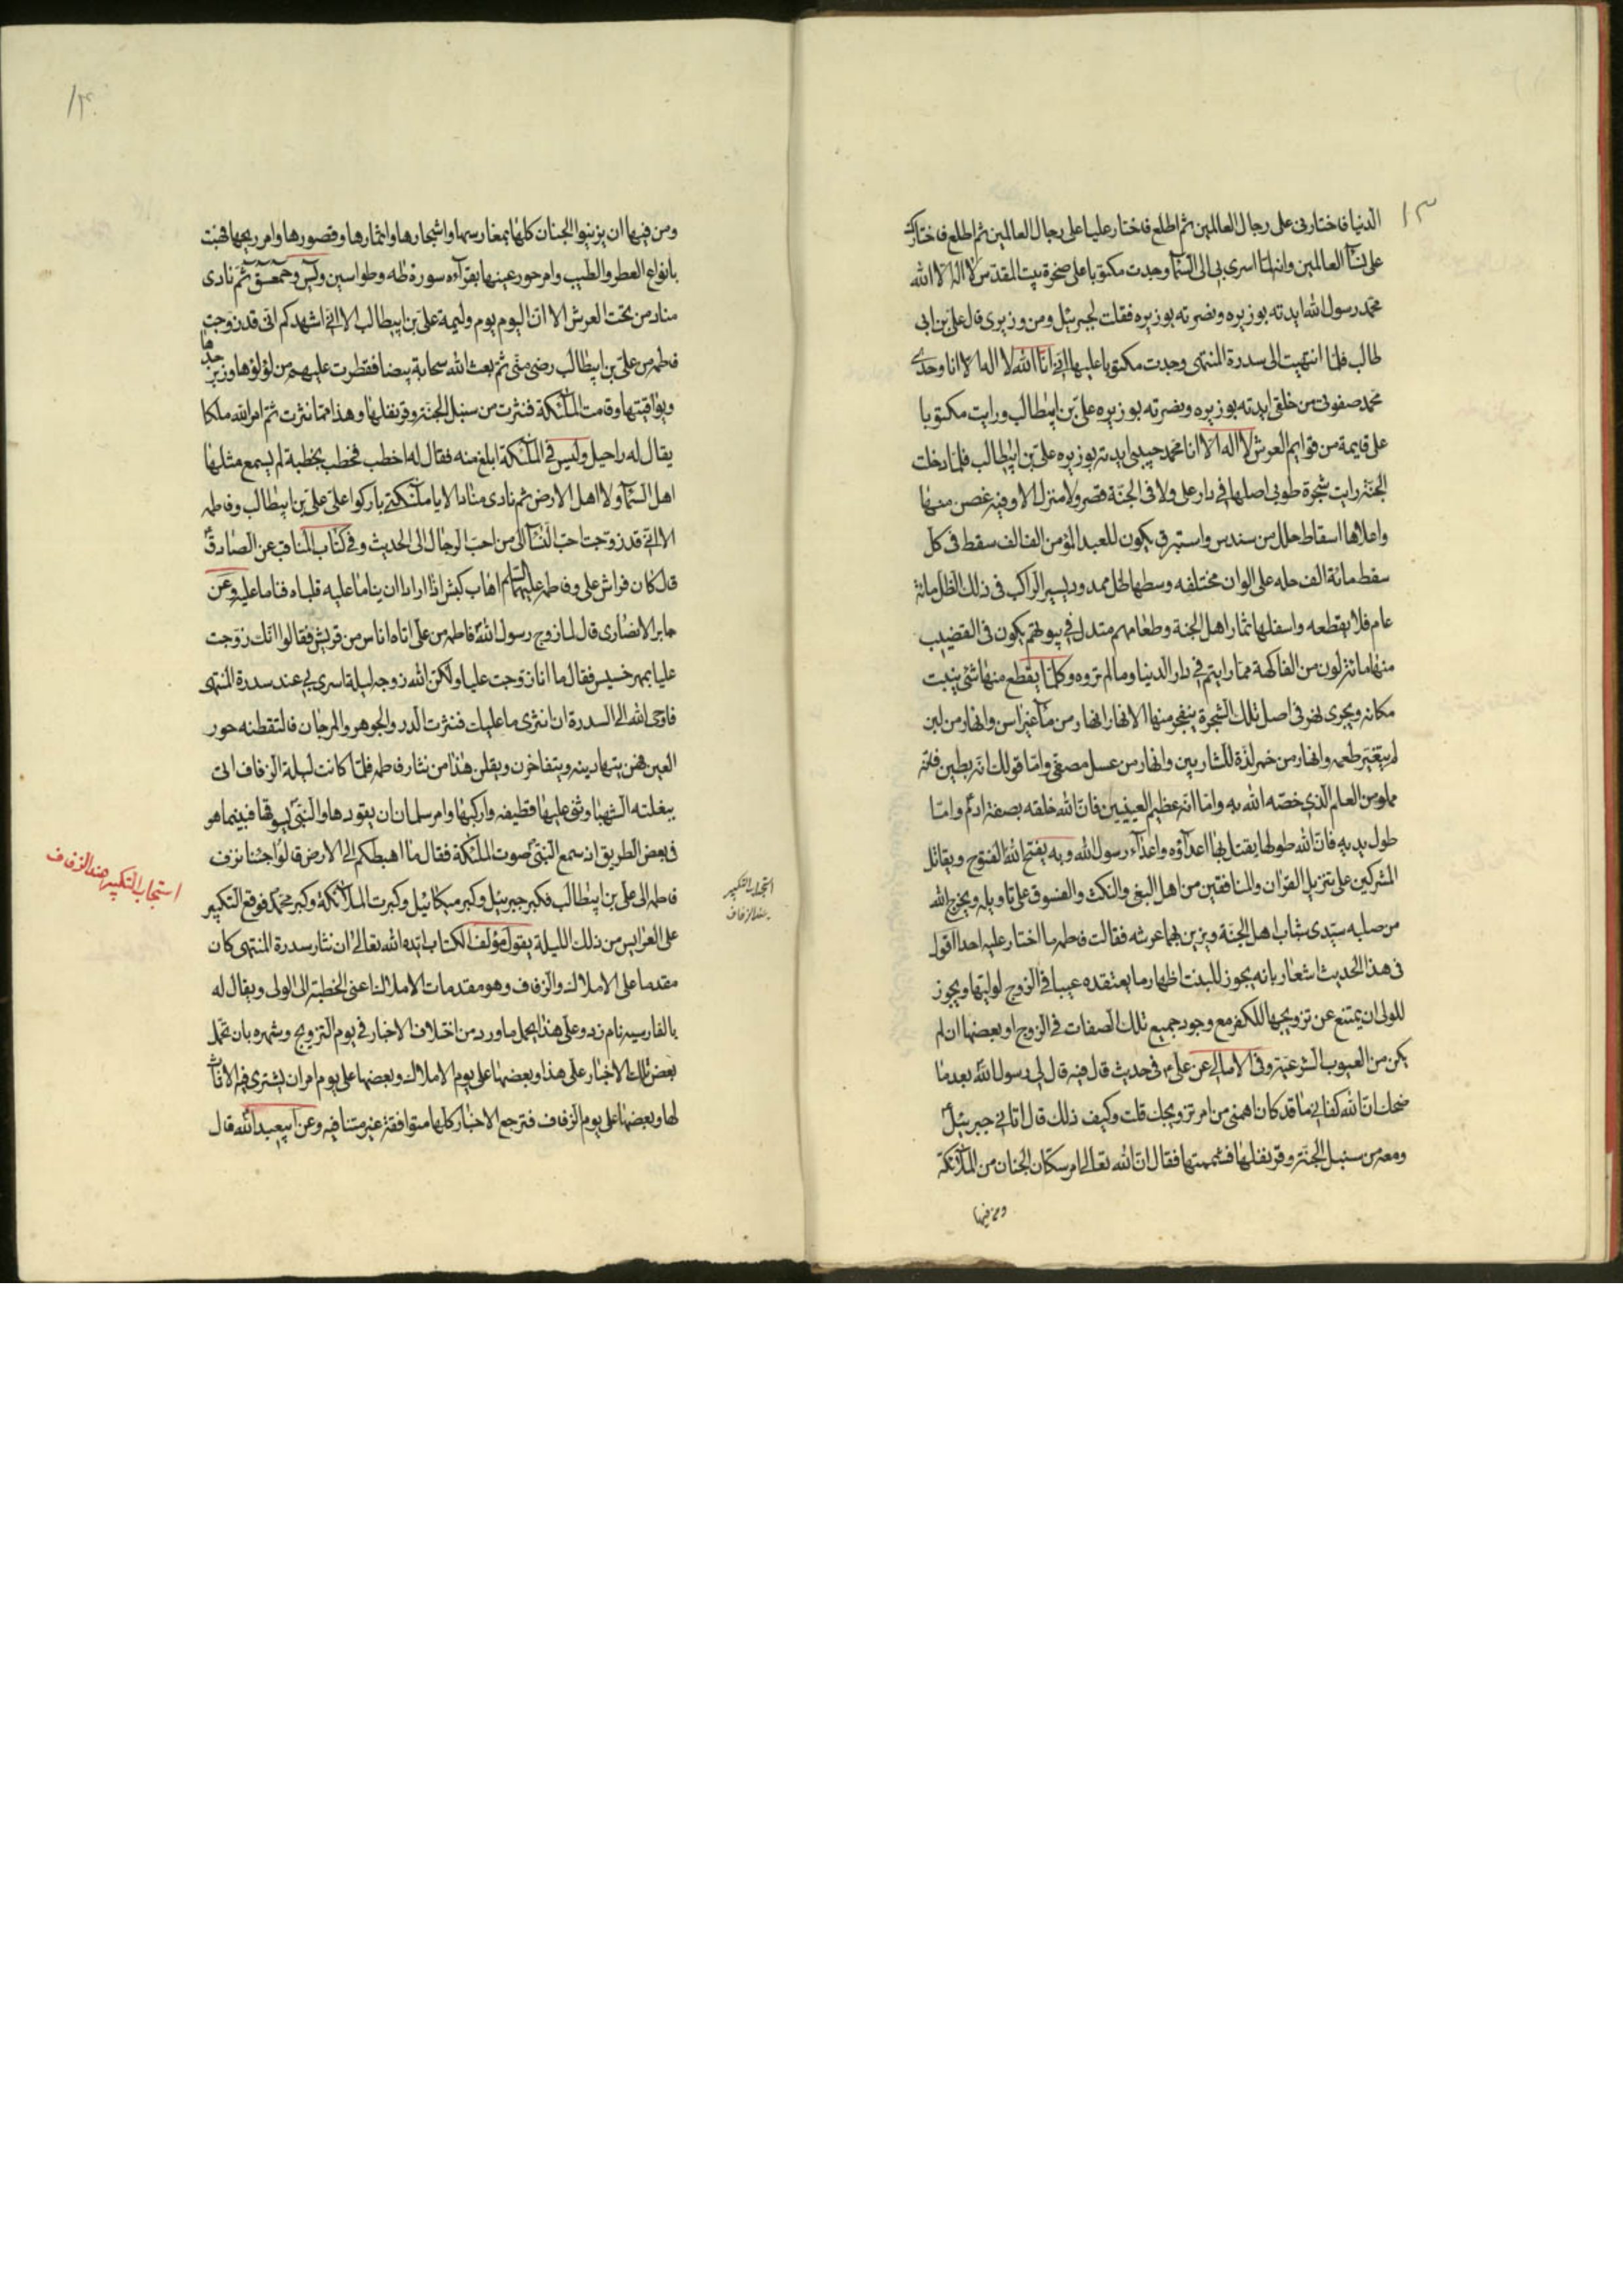 ١٣
الدنيا فاختارنى على رجال العالمين ثم اطلع فاختار عليا على رجال العالمين ثم اطلع فاختارك
على نسآء العالمين وانه لما اسرى بى الى السمآء وجدت مكتوبا على صخرة بيت المقدس لا اله الا الله
محمد رسول الله ايدته بوزيره ونصرته بوزيره فقلت لجبرئيل ومن وزيرى قال على بن ابى
طالب فلما انتهيت الى سدرة المنتهى وجدت مكتوبا عليها انى انا الله لا اله الا انا وحدى
محمد صفوتى من خلقى ايدته بوزيره ونصرته بوزيره على بن ابيطالب ورايت مكتوبا
على قايمة من قوايم العرش لا اله الا انا محمد حبيبى ايدته بوزيره على بن ابيطالب فلما دخلت
الجنة رايت شجرة طوبى اصلها فى دار على ولا فى الجنة قصر ولا منزل الا وفيه غصن منها
واعلاها اسقاط حلل من سندس واستبرق يكون للعبد المؤمن الف الف سقط فى كل
سقط مائة الف حله على الوان مختلفه وسطها ظل ممدود يسير الراكب فى ذلك الظل مائة
عام فلا يقطعه واسفلها ثمار اهل الجنة وطعامهم متدل فى بيوتهم يكون فى القضيب
منها مائة لون من الفاكهة مما رايتم فى دار الدنيا ومما لم تروه وكلما يقطع منها شئ ينبت
مكانه ويجرى نهر فى اصل تلك الشجرة ينفجر منها الانهار انهار من مآء غير اسن وانهار من لبن
لم يتغير طعمه وانهار من خمر لذة للشاربين وانهار من عسل مصفى واما قولك انه بطين فانه
مملو من العلم الذى خصه الله به واما انه عظيم العينين فان الله خلقه بصفة ادم واما
طول يديه فان الله طولها ليقتل بها اعدآؤه واعدآء رسول الله وبه يفتح الله الفتوح ويقاتل
المشركين على تنزيل القران والمنافقين من اهل البغى والنكث والفسوق على تاويله ويخرج الله
من صلبه سيدى شباب اهل الجنة ويزين بهما عرشه فقالت فاطمه ما اختار عليه احدا اقول
فى هذا الحديث اشعار بانه يجوز للبنت اظهار ما يعتقده عيبا فى الزوج لوليها ويجوز
للولى ان يمتنع عن تزويجها للكفو مع وجود جميع تلك الصفات فى الزوج او بعضها ان لم
يكن من العيوب الشرعية وفى الامالى عن على م فى حديث قال فيه قال لى رسول الله بعد ما
ضحك ان الله كفانى ما قد كان اهمنى من امر تزويجك قلت وكيف ذلك قال اتانى جبرئيل
ومعه من سنبل الجنة وقرنفلها فشممتها فقال ان الله تعالى امر سكان الجنان من الملآئكة
ومن فيها
١٤
ومن فيها ان يزينوا الجنان كلها بمغارسها واشجارها واثمارها وقصورها وامر ريحها فهبت
بانواع العطر والطيب وامر حور عينها بقرآءه سورة طه وطواسين ويس وحمعسق ثم نادى
مناد من تحت العرش الا ان اليوم يوم وليمة على بن ابيطالب الا انى اشهدكم انى قد زوجت
فاطمه من على بن ابيطالب رضى منى ثم بعث الله سحابة بيضا فقطرت عليهم من لؤلؤها وزبرجدها
ويواقيتها وقامت الملئكة فنثرت من سنبل الجنة وقرنفلها وهذا مما نثرت ثم امر الله ملكا
يقال له راحيل وليس فى الملئكة ابلغ منه فقال له اخطب فخطب بخطبة لم يسمع مثلها
اهل السمآء ولا اهل الارض ثم نادى مناد الا يا ملئكتى باركوا على على بن ابيطالب وفاطمه
الا انى قد زوجت احب النسآء الى من احب الرجال الى الحديث وفى كتاب المناقب عن الصادق
قال كان فراش على وفاطمه عليهما السلم اهاب كبش اذا ارادا ان يناما عليه قلباه فناما عليه وعن
جابر الانصارى قال لما زوج رسول الله فاطمه من على اتاه اناس من قريش فقالوا انك زوجت
عليا بمهر خسيس فقال ما انا زوجت عليا ولكن الله زوجه ليلة اسرى بى عند سدرة المنتهى
فاوحى الله الى السدرة ان انثرى ما عليك فنثرت الدر والجوهر والمرجان فالتقطنه حور
العين فهن يتهادينه ويتفاخرن ويقلن هذا من نثار فاطمه فلما كانت ليلة الزفاف اتى
ببغلته الشهبا وثنى عليها قطيفه واركبها وامر سلمان ان يقودها والنبى يسوقها فبينما هو
فى بعض الطريق اذ سمع النبى صوت الملئكة فقال ما اهبطكم الى الارض قالوا جئنا نزف
فاطمه الى على بن ابيطالب فكبر جبرئيل وكبر ميكائيل وكبرت الملائكة وكبر محمد فوقع التكبير
على العرايس من ذلك الليلة يقول مؤلف الكتاب ايده الله تعالى ان نثار سدرة المنتهى كان
مقدما على الاملاك والزفاف وهو مقدمات الاملاك اعنى الخطبة الى الولى ويقال له
بالفارسيه نام زد وعلى هذا يحمل ما ورد من اختلاف الاخبار فى يوم التزويج وشهره بان تحمل
بعض تلك الاخبار على هذا وبعضها على يوم الاملاك وبعضها على يوم امر ان يشترى فيه الاثاث
لها وبعضها على يوم الزفاف فترجع الاخبار كلها متوافقة غير متنافيه وعن ابيعبد الله قال
استحباب التكبير
عند الزفاف
استحباب التكبير عند الزفاف